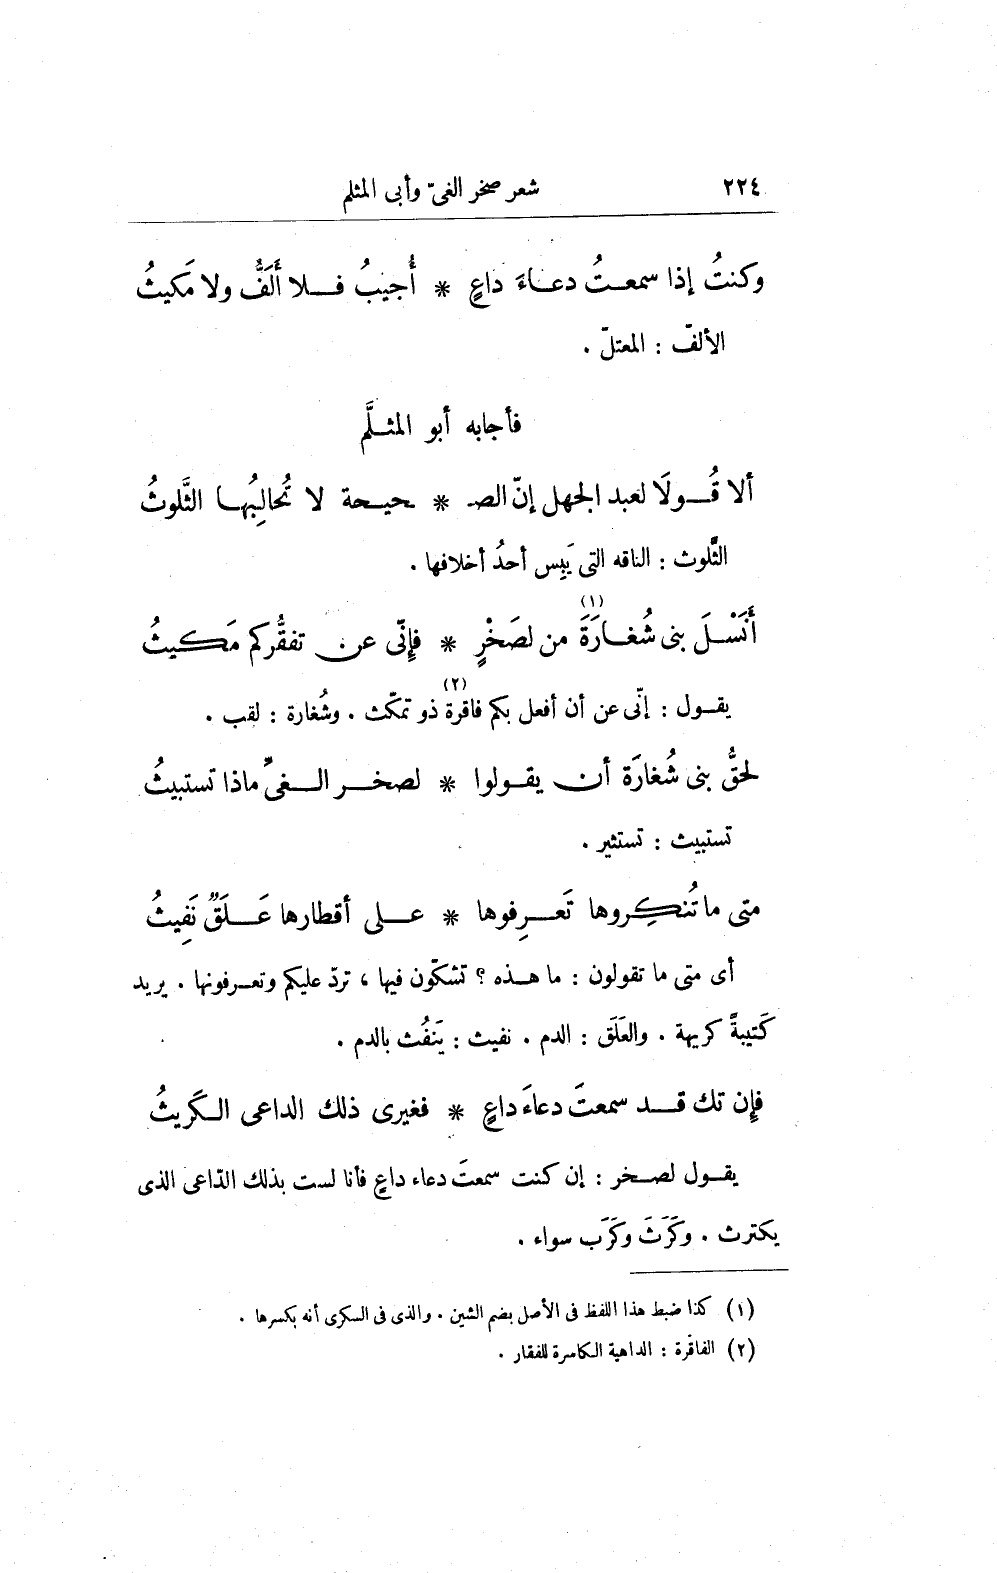 ٢٢٤ شعر صخر الغىّ وأبى المثلم
وكنتُ إذا سمعـتُ دعـاءَ داعٍ * أُجيبُ فـلا أَلَفُّ ولا مَكيثُ
الألفّ : المعتلّ .
فأجابه أبو المثـلَّم
ألا قُـولَا لعبد الجهل إنّ الصـ * حيحة لا تُحالِبُها الثَّلوثُ
الثَّلوث : الناقه التى يَبِس أحدُ أخلافها .
أَنَسْلَ بنى شُغـارَةَ (١) من لصَخْرٍ * فإنّى عن تفقُّركم مَكيثُ
يقـول : إنّى عن أن أفعل بكم فاقرة (٢) ذو تمكّث . وشُغارة : لقب .
لحقُّ بنى شُغارَة أن يقـولوا * لصخـر الـغىِّ ماذا تستبيثُ
تستبيث : تستثير .
متى ما تُنكِروها تَعـرِفوها * عـلى أقطارها عَـلَقٌ نَفِيثُ
أى متى ما تقولون : ما هـذه ؟ تشكّون فيها ، تردّ عليكم وتعـرفونها . يريد
كَتيبةً كريهة . والعَلَق : الدم . نفيث : يَنفُث بالدم .
فإن تك قـد سمعتَ دعاءَ داعٍ * فغيرى ذلك الداعى الكَريثُ
يقـول لصـخر : إن كنت سمعتَ دعاء داعٍ فأنا لست بذلك الدّاعى الذى
يكترث . وكَرَثَ وكَرَب سواء .
(١) كذا ضبط هذا اللفظ فى الأصل بضم الشين . والذى فى السكرى أنه بكسرها .
(٢) الفاقرة : الداهية الكاسرة للفقار .